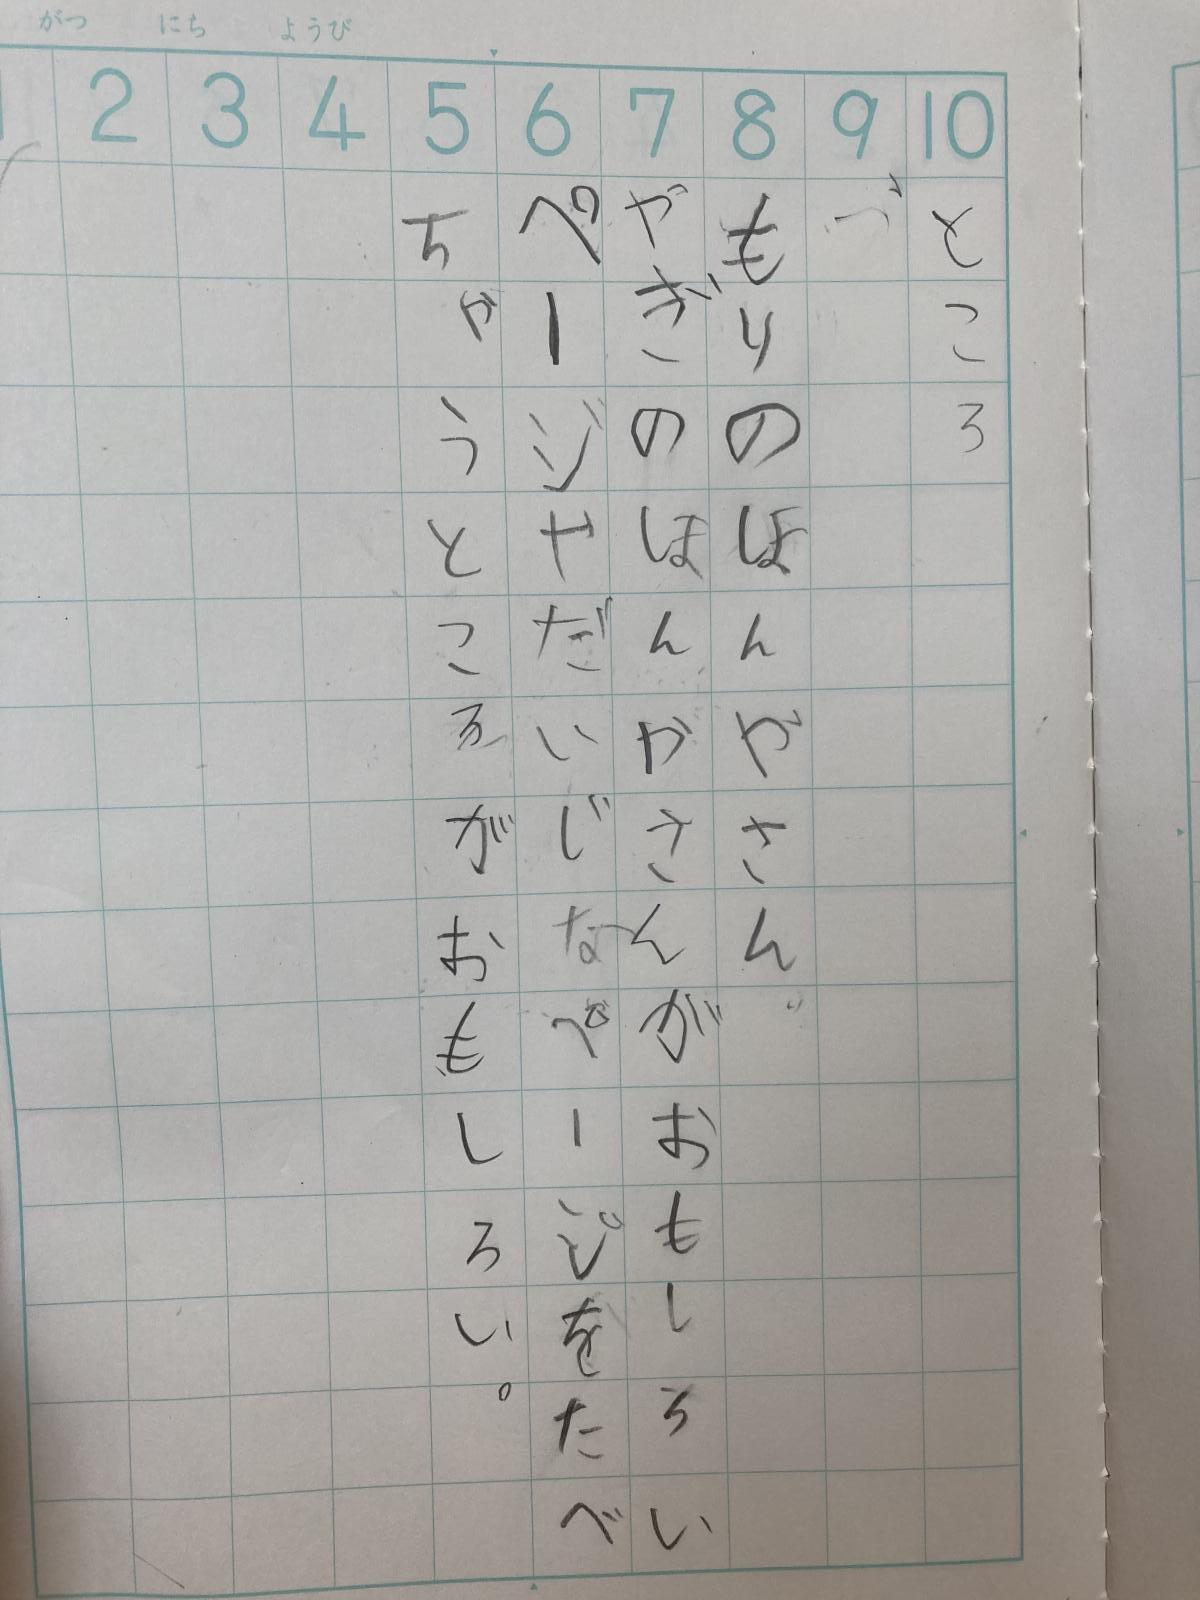 がつ にち ようび
10 9 8 7 6 5 4 3 2
ところ
もりのほんやさん
やぎのほんやさんがおもしろい
ページやだいじなページをたべ
ちゃうところがおもしろい。